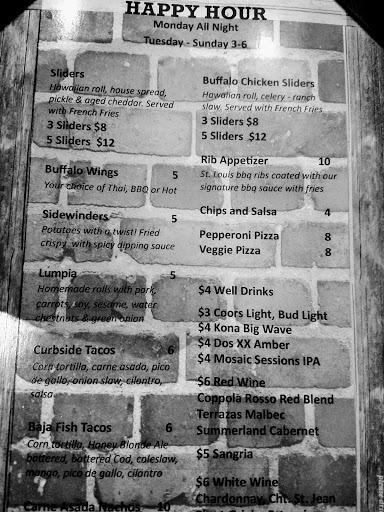 HAPPY HOUR
Monday All Night
Tuesday - Sunday 3-6
Sliders
Hawaiian roll, house spread,
pickle & aged cheddar. Served
with French Fries
3 Sliders $8
5 Sliders $12
Buffalo Wings 5
Your choice of Thai, BBQ or Hot
Sidewinders 5
Potatoes with a twist! Fried
crispy with spicy dipping sauce
Lumpia 5
Homemade rolls with pork,
carrots, soy, sesame, water
chestnuts & green onion
Curbside Tacos 6
Corn tortilla, carne asada, pico
de gallo, onion slaw, cilantro,
salsa
Baja Fish Tacos 6
Corn tortilla, Honey Blonde Ale
battered, battered Cod, coleslaw,
mango, pico de gallo, cilantro
Carne Asada Nachos 10
Buffalo Chicken Sliders
Hawaiian roll, celery - ranch
slaw. Served with French Fries
3 Sliders $8
5 Sliders $12
Rib Appetizer 10
St. Louis bbq ribs coated with our
signature bbq sauce with fries
Chips and Salsa 4
Pepperoni Pizza 8
Veggie Pizza 8
$4 Well Drinks
$3 Coors Light, Bud Light
$4 Kona Big Wave
$4 Dos XX Amber
$4 Mosaic Sessions IPA
$6 Red Wine
Coppola Rosso Red Blend
Terrazas Malbec
Summerland Cabernet
$5 Sangria
$6 White Wine
Chardonnay, Cht. St. Jean